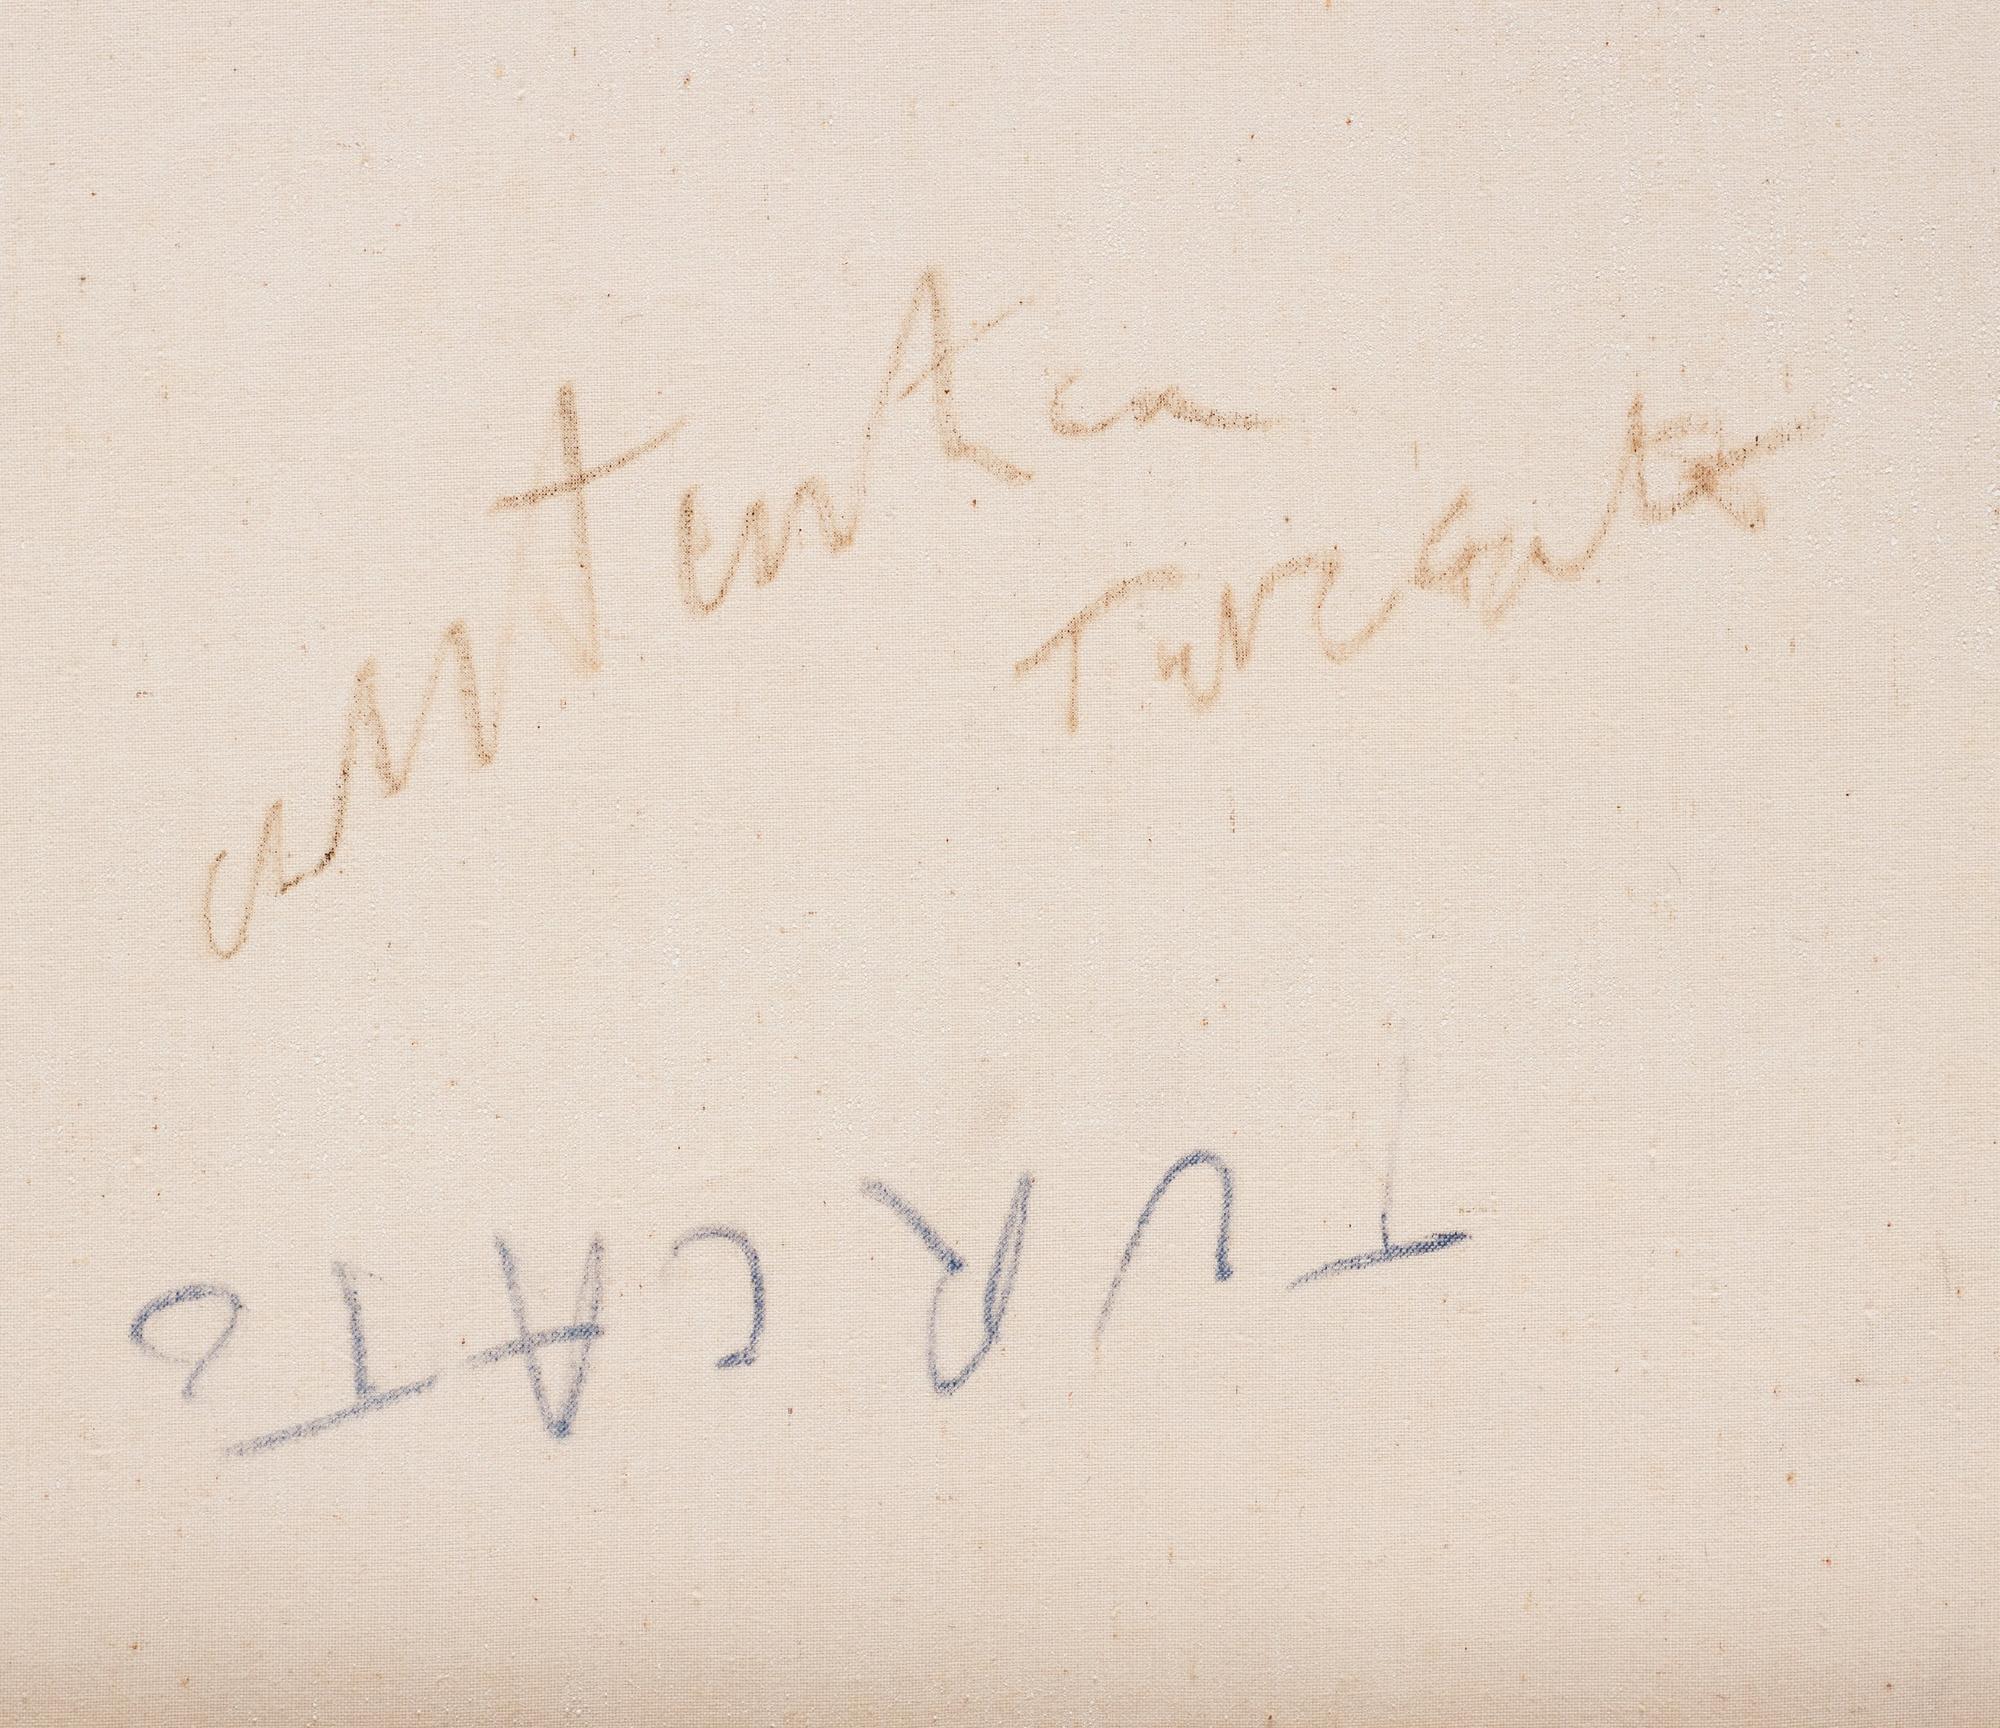 autentica
Turcato
TURCATO